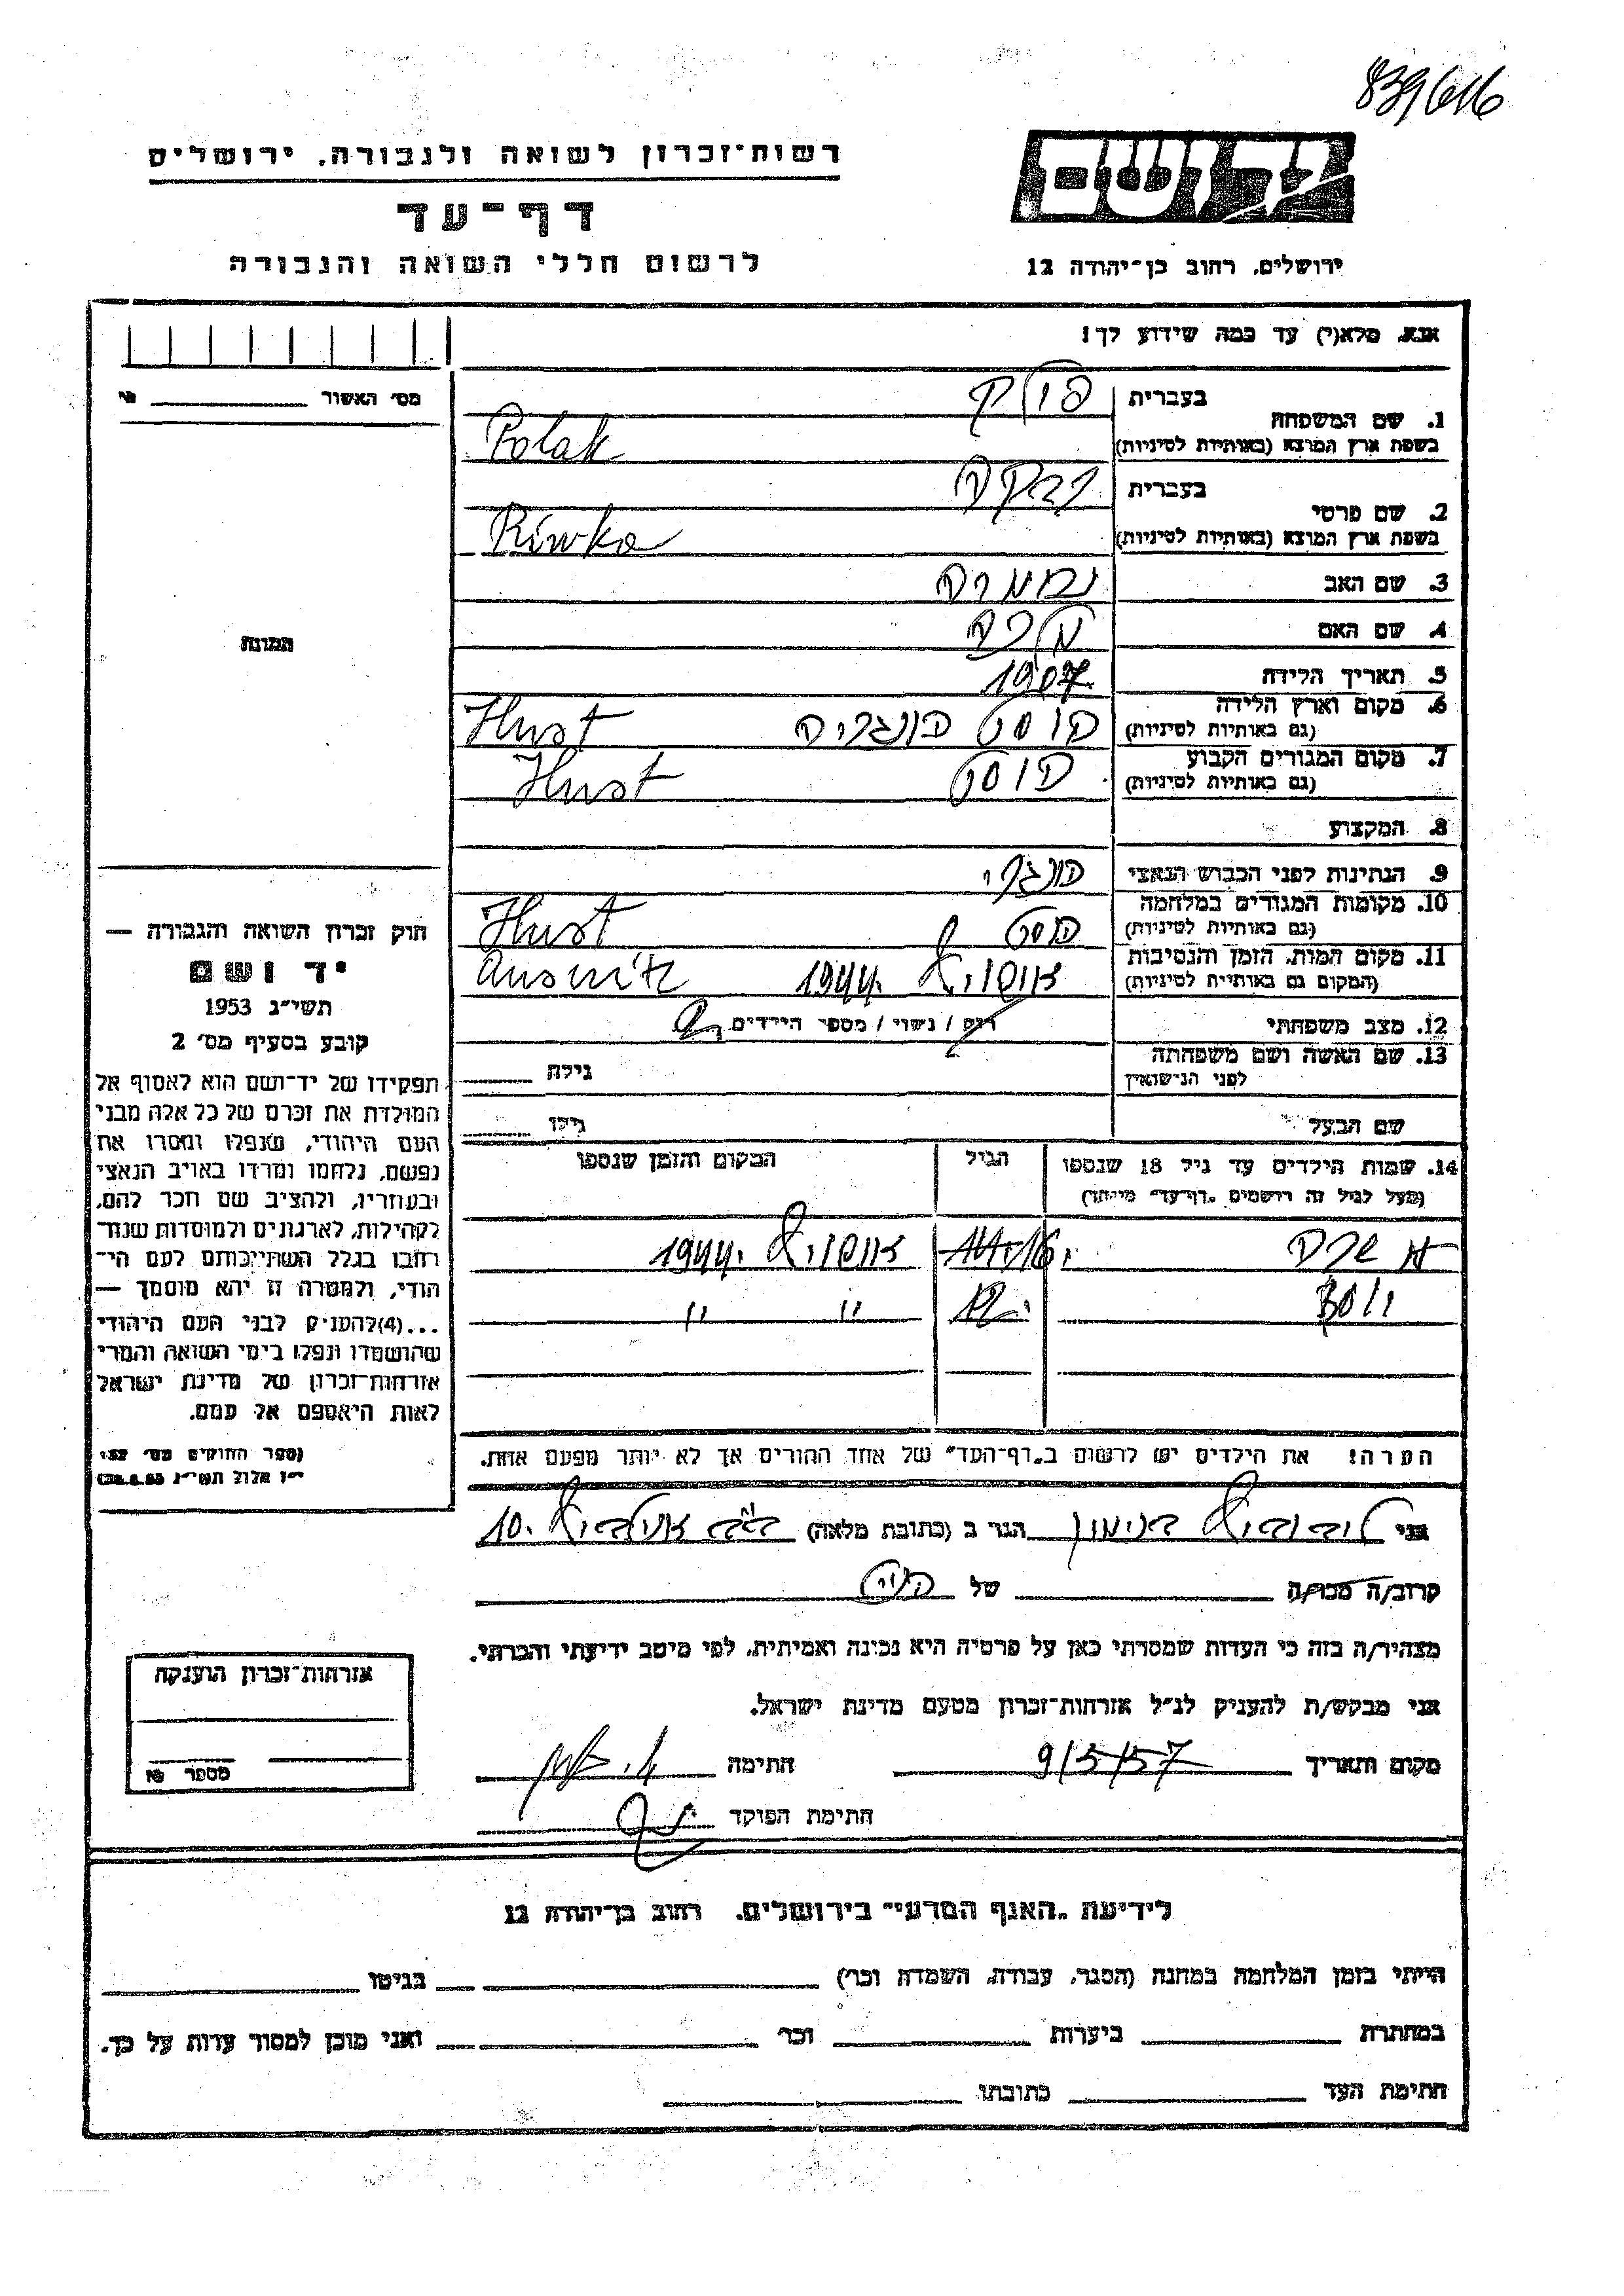 839616
רשות־זכרון לשואה ולגבורה, ירושלים
דף־עד
לרשום חללי השואה והגבורה
יד ושם
ירושלים, רחוב בן־יהודה 12
אנא, מלא(י) עד כמה שידוע לך!
מס׳ האשור
1. שם המשפחה
בעברית פולק
בשפת ארץ המוצא (באותיות לטיניות) Polak
2. שם פרטי
בעברית רבקה
בשפת ארץ המוצא (באותיות לטיניות) Riwka
3. שם האב
4. שם האם
5. תאריך הלידה 1907.
6. מקום וארץ הלידה
(גם באותיות לטיניות) הוסט הונגריה Hust
7. מקום המגורים הקבוע
(גם באותיות לטיניות) הוסט Hust
8. המקצוע
9. הנתינות לפני הכבוש הנאצי הונגרי
10. מקומות המגורים במלחמה
(גם באותיות לטיניות) הוסט Hust
11. מקום המות, הזמן והנסיבות
(המקום גם באותיות לטיניות) אושוויץ 1944. Auswitz
12. מצב משפחתי רווק / נשוי / מספר הילדים
13. שם האשה ושם משפחתה
לפני הנישואין
גילה
שם הבעל
גילו
14. שמות הילדים עד גיל 18 שנספו
(מעל לגיל זה רושמים „דף־עד" מיוחד)
הגיל
המקום והזמן שנספו
16. 1944.
יוסף
" "
הערה! את הילדים יש לרשום ב„דף־העד" של אחד ההורים אך לא יותר מפעם אחת.
תמונה
חוק זכרון השואה והגבורה —
יד ושם
תשי״ג 1953
קובע בסעיף מס׳ 2
תפקידו של יד־ושם הוא לאסוף אל
המולדת את זכרם של כל אלה מבני
העם היהודי, שנפלו ומסרו את
נפשם, נלחמו ומרדו באויב הנאצי
ובעוזריו, ולהציב שם וזכר להם,
לקהילות, לארגונים ולמוסדות שנח־
רבו בגלל השתייכותם לעם הי־
הודי, ולמטרה זו יהא מוסמך —
...(4) להעניק לבני העם היהודי
שהושמדו ונפלו בימי השואה והמרי
אזרחות־זכרון של מדינת ישראל
לאות היאספם אל עמם.
(ספר החוקים מס׳ 132
י״ז אלול תשי״ג 28.8.53)
אני ליבוביץ הגר ב (כתובת מלאה) 10.
קרוב/ה מכר/ה של
מצהיר/ה בזה כי העדות שמסרתי כאן על פרטיה היא נכונה ואמיתית, לפי מיטב ידיעתי והכרתי.
אני מבקש/ת להעניק לנ״ל אזרחות־זכרון מטעם מדינת ישראל.
מקום ותאריך 9/5/57 חתימה
חתימת הפוקד
אזרחות־זכרון הוענקה
מספר
לידיעת „האגף המדעי" בירושלים, רחוב בן־יהודה 12
הייתי בזמן המלחמה במחנה (הסגר, עבודה, השמדה וכו׳) בגיטו
במחתרת ביערות וכו׳ ואני מוכן למסור עדות על כך.
חתימת העד כתובתו